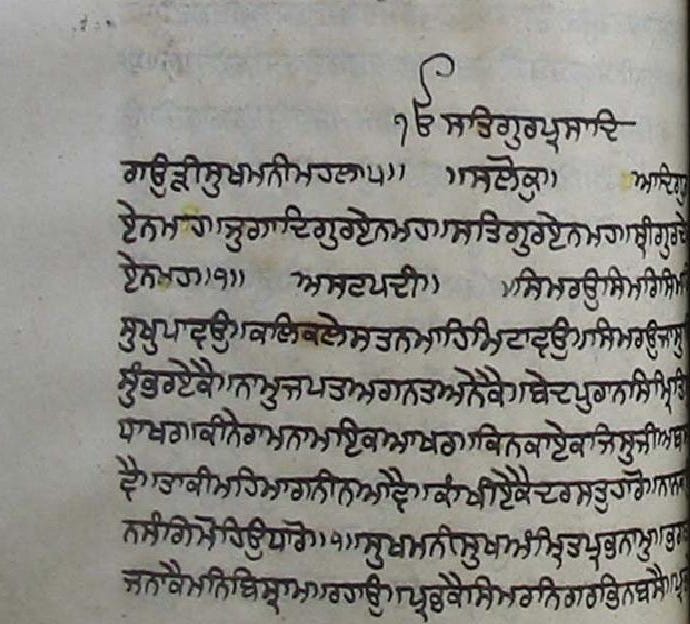 ੴ ਸਤਿਗੁਰਪ੍ਰਸਾਦਿ
ਗਉੜੀਸੁਖਮਨੀਮਹਲਾ੫॥ ॥ਸਲੋਕੁ॥ ਆਦਿਗੁ
ਏਨਮਹ॥ਜੁਗਾਦਿਗੁਰਏਨਮਹ॥ਸਤਿਗੁਰਏਨਮਹ॥ਸ੍ਰੀਗੁਰਦੇ
ਏਨਮਹ॥੧॥ ਅਸਟਪਦੀ॥ ॥ਸਿਮਰਉਸਿਮਰਿਸਿਮਰਿ
ਸੁਖੁਪਾਵਉ॥ਕਲਿਕਲੇਸਤਨਮਾਹਿਮਿਟਾਵਉ॥ਸਿਮਰਉਜਾਸੁ
ਸੁੰਭਰਏਕੈ॥ਨਾਮੁਜਪਤਅਗਨਤਅਨੇਕੈ॥ਬੇਦਪੁਰਾਨਸਿੰਮ੍ਰਿਤਿ
ਧਾਖਰ॥ਕੀਨੇਰਾਮਨਾਮਇਕਆਖਰ॥ਕਿਨਕਾਏਕਜਿਸੁਜੀਅਬ
ਵੈ॥ਤਾਕੀਮਹਿਮਾਗਨੀਨਆਵੈ॥ਕਾਂਖੀਏਕੈਦਰਸਤੁਹਾਰੋ॥ਨਾਨਕ
ਨਸੰਗਿਮੋਹਿਉਧਾਰੋ॥੧॥ਸੁਖਮਨੀਸੁਖਅੰਮ੍ਰਿਤਪ੍ਰਭਨਾਮੁ॥ਭਗ
ਜਨਾਕੈਮਨਿਬਿਸ੍ਰਾਮ॥ਰਹਾਉ॥ਪ੍ਰਭਕੈਸਿਮਰਨਿਗਰਭਿਨਬਸੈ॥ਪ੍ਰ